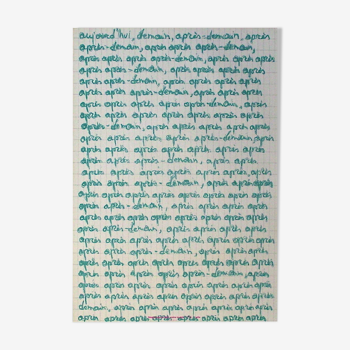 aujourd'hui, demain, après-demain, après
après-demain, après après-demain,
après après après-demain, après après
après après-demain, après après après
après après-demain, après après après
après après après après-demain, après
après après après après-demain, après
après après après après après après
après-demain, après après après après
après après après après-demain, après
après après après après après après
après après après-demain, après après
après après après après après, après
après après après-demain, après après
après après après après après après
après après-demain, après après après
après après après après après après
après-demain, après après après après
après après après après après après
après après après-demain, après après
après après après après après après
après après après après-demain, après
après après après après après après
après après après après après après
demain, après après après après après
après après après après après après